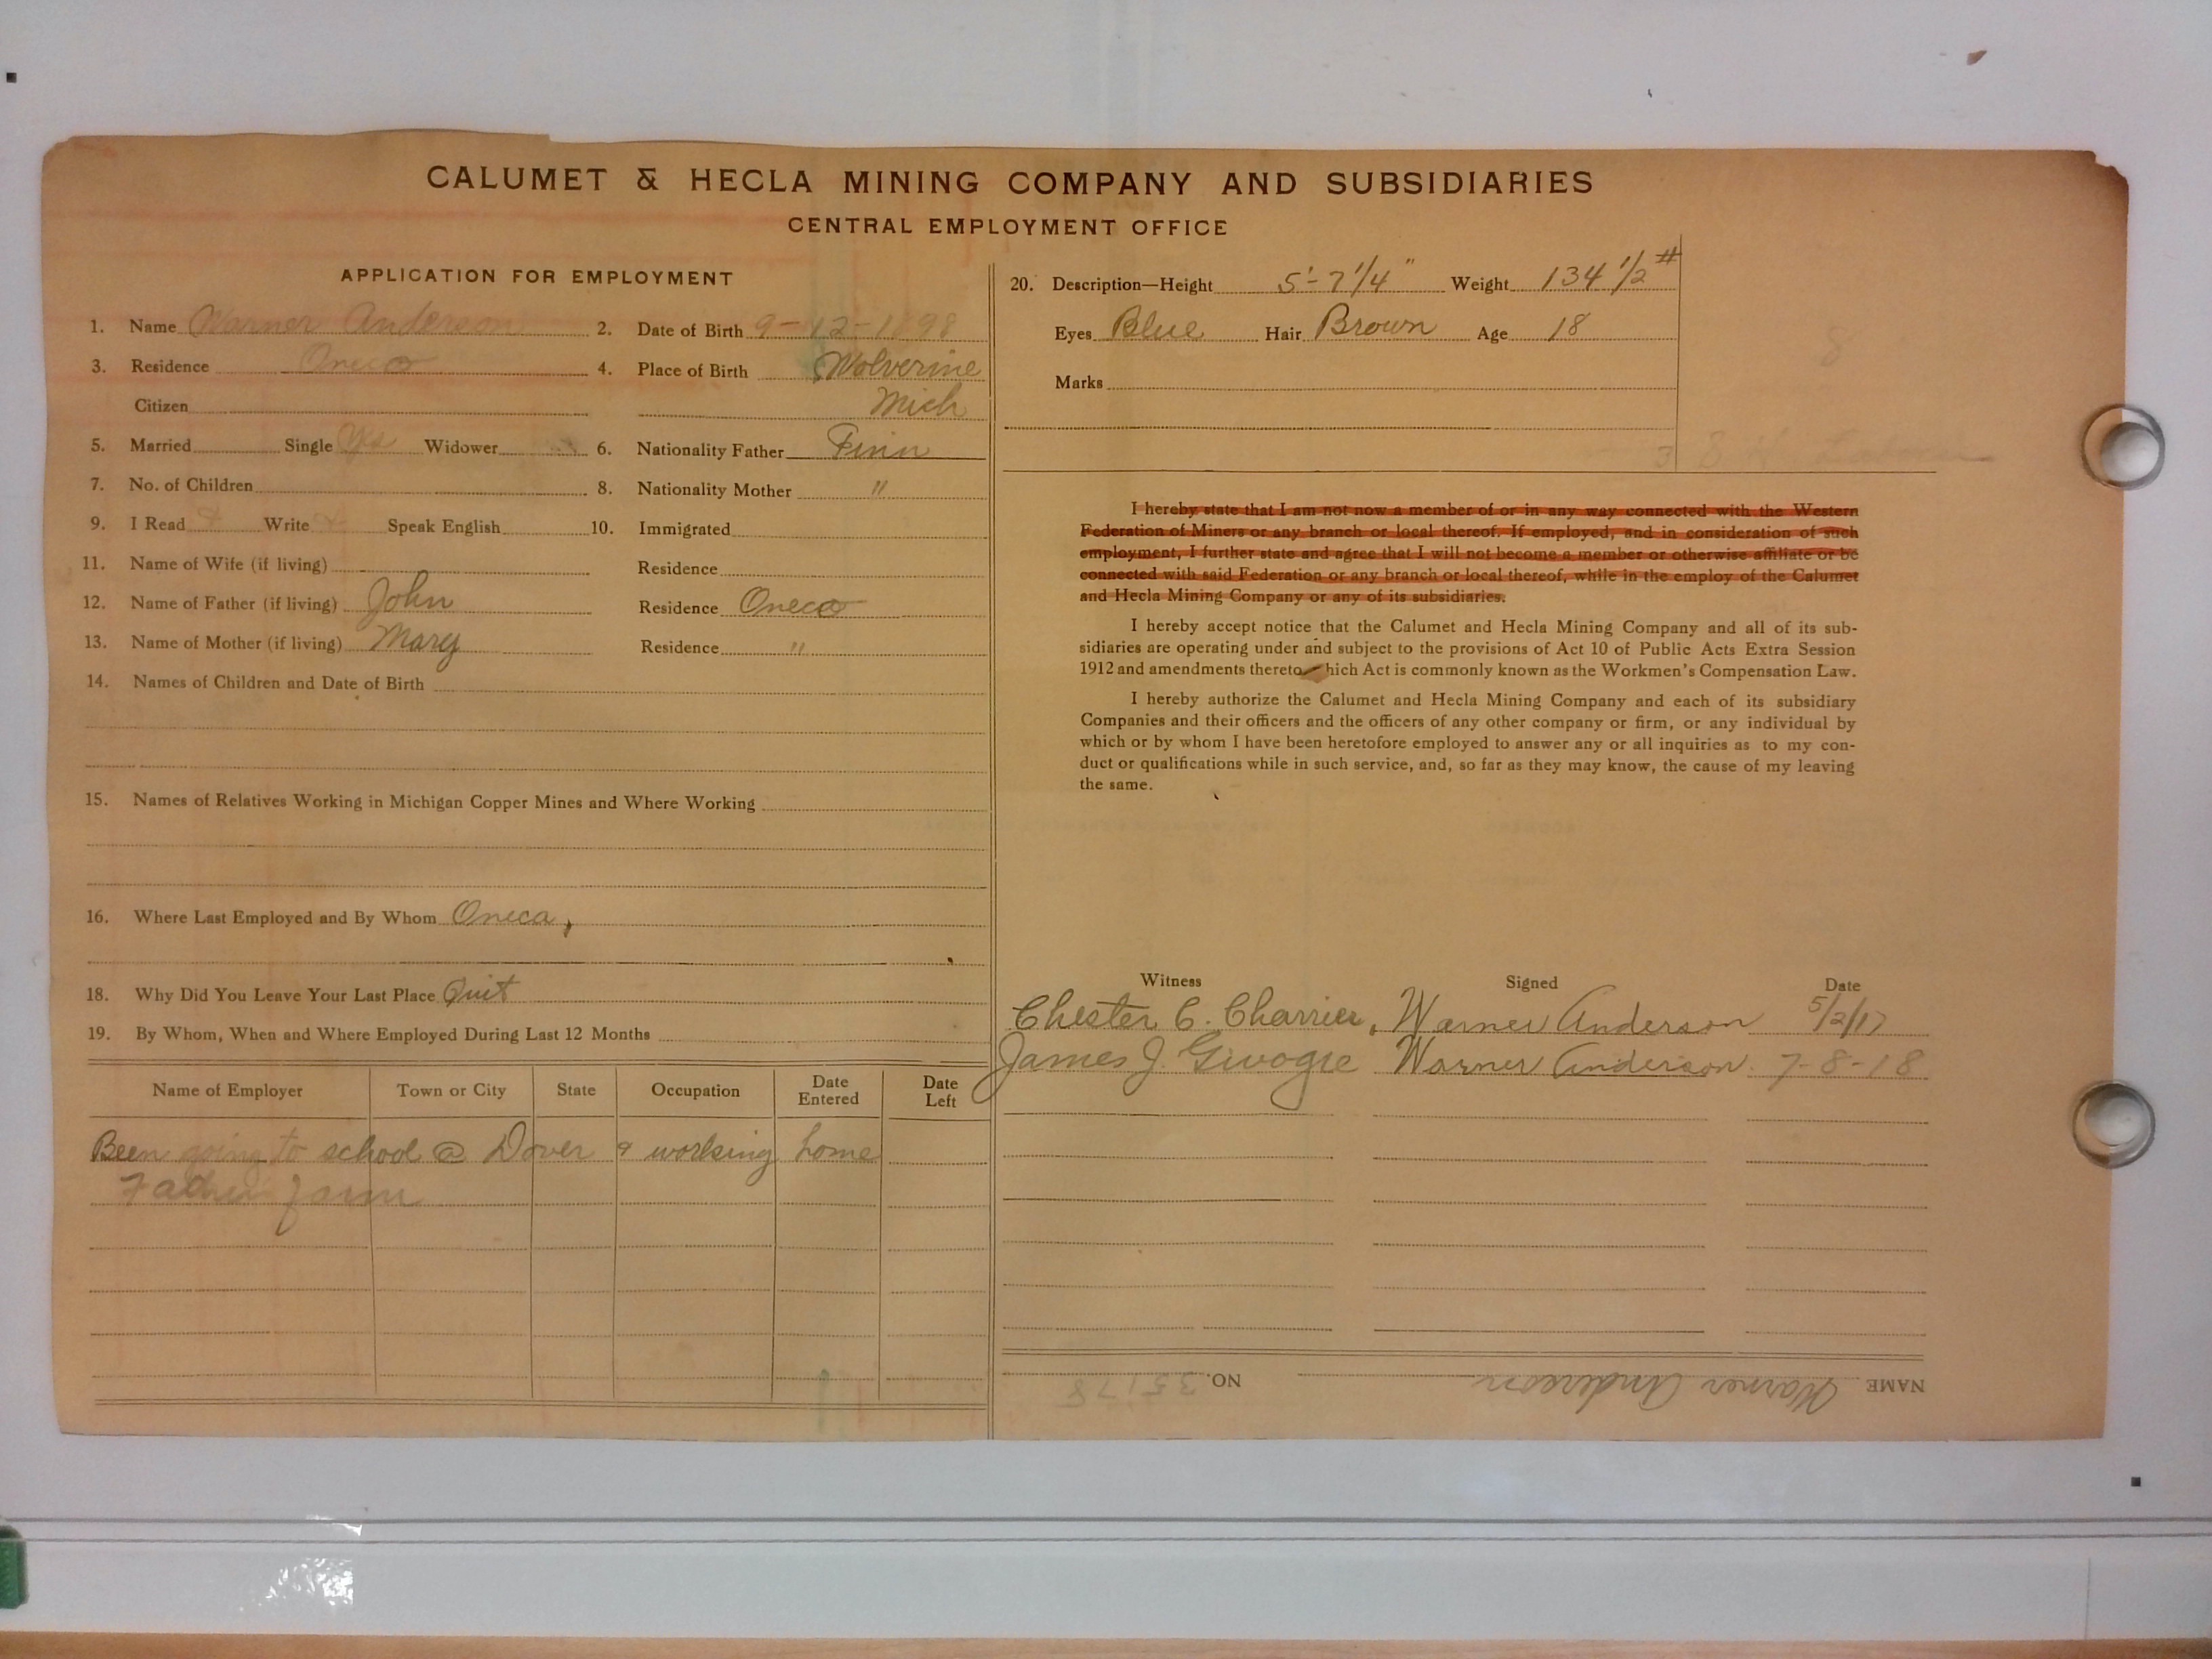 CALUMET & HECLA MINING COMPANY AND SUBSIDIARIES
CENTRAL EMPLOYMENT OFFICE
APPLICATION FOR EMPLOYMENT
1. Name Warner Anderson 2. Date of Birth 9-12-1898
3. Residence Oneco 4. Place of Birth Wolverine
Citizen Mich
5. Married Single Yes Widower 6. Nationality Father Finn
7. No. of Children 8. Nationality Mother "
9. I Read Write Speak English 10. Immigrated
11. Name of Wife (if living) Residence
12. Name of Father (if living) John Residence Oneco
13. Name of Mother (if living) Mary Residence "
14. Names of Children and Date of Birth
15. Names of Relatives Working in Michigan Copper Mines and Where Working
16. Where Last Employed and By Whom Oneca,
18. Why Did You Leave Your Last Place Quit
19. By Whom, When and Where Employed During Last 12 Months
Name of Employer Town or City State Occupation Date Entered Date Left
Been going to school @ Dover & working home
Father farm
20. Description—Height 5'-7 1/4" Weight 134 1/2 #
Eyes Blue Hair Brown Age 18
Marks
3
I hereby state that I am not now a member of or in any way connected with the Western
Federation of Miners or any branch or local thereof. If employed, and in consideration of such
employment, I further state and agree that I will not become a member or otherwise affiliate or be
connected with said Federation or any branch or local thereof, while in the employ of the Calumet
and Hecla Mining Company or any of its subsidiaries.
I hereby accept notice that the Calumet and Hecla Mining Company and all of its sub-
sidiaries are operating under and subject to the provisions of Act 10 of Public Acts Extra Session
1912 and amendments thereto hich Act is commonly known as the Workmen's Compensation Law.
I hereby authorize the Calumet and Hecla Mining Company and each of its subsidiary
Companies and their officers and the officers of any other company or firm, or any individual by
which or by whom I have been heretofore employed to answer any or all inquiries as to my con-
duct or qualifications while in such service, and, so far as they may know, the cause of my leaving
the same.
Witness Signed Date
Chester C. Charrier, Warner Anderson 5/2/17
James J. Givogre Warner Anderson. 7-8-18
NAME Warner Anderson NO. 35178